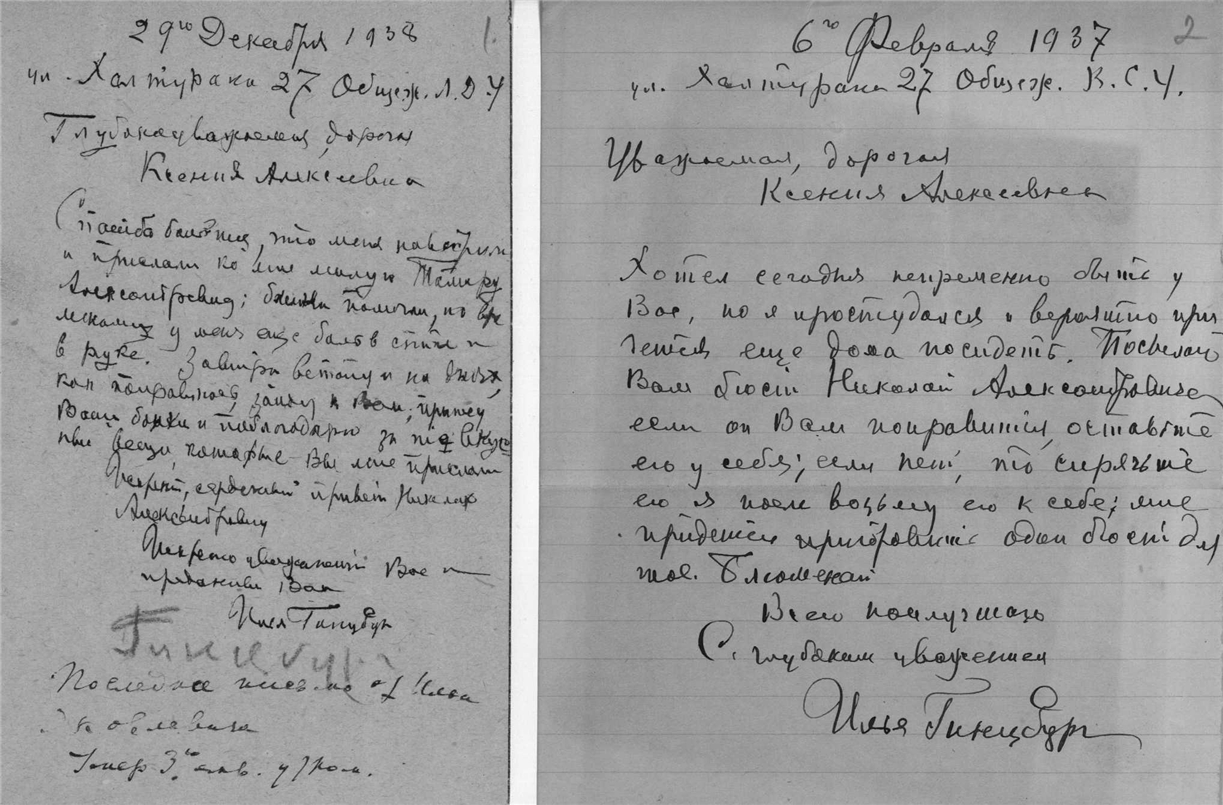 1.
29го Декабря 1938
ул. Халтурина 27 Общеж. Л.Д.У
Глубокоуважаемая, дорогая
Ксения Алексеевна
Спасибо большое, что меня навестили
и прислали ко мне милую Тамару
Александровну; банки помогли, но
у меня еще боль в спине и
в руке. Завтра встану и на днях,
как поправлюсь, зайду к Вам, принесу
Ваши банки и поблагодарю за те вкусные
вещи, которые Вы мне прислали
Искрен, сердечный привет Николаю
Александровичу
Искренно уважающий Вас и
преданный Вам
Илья Гинцбург
Гинцбург
Последнее письмо от Ильи
Яковлевича
Умер 3го янв. утром.
2
6го Февраля 1937
ул. Халтурина 27 Общеж. К.С.У.
Уважаемая, дорогая
Ксения Алексеевна
Хотел сегодня непременно быть у
Вас, но я простудился и вероятно при
дется еще дома посидеть. Посылаю
Вам бюст Николая Александровича
если он Вам понравится, оставьте
его у себя; если нет, то спрячьте
его я после возьму его к себе; мне
придется приготовить один бюст для
тов. Блюменталь
Всего наилучшаго
С глубоким уважением
Илья Гинцбург